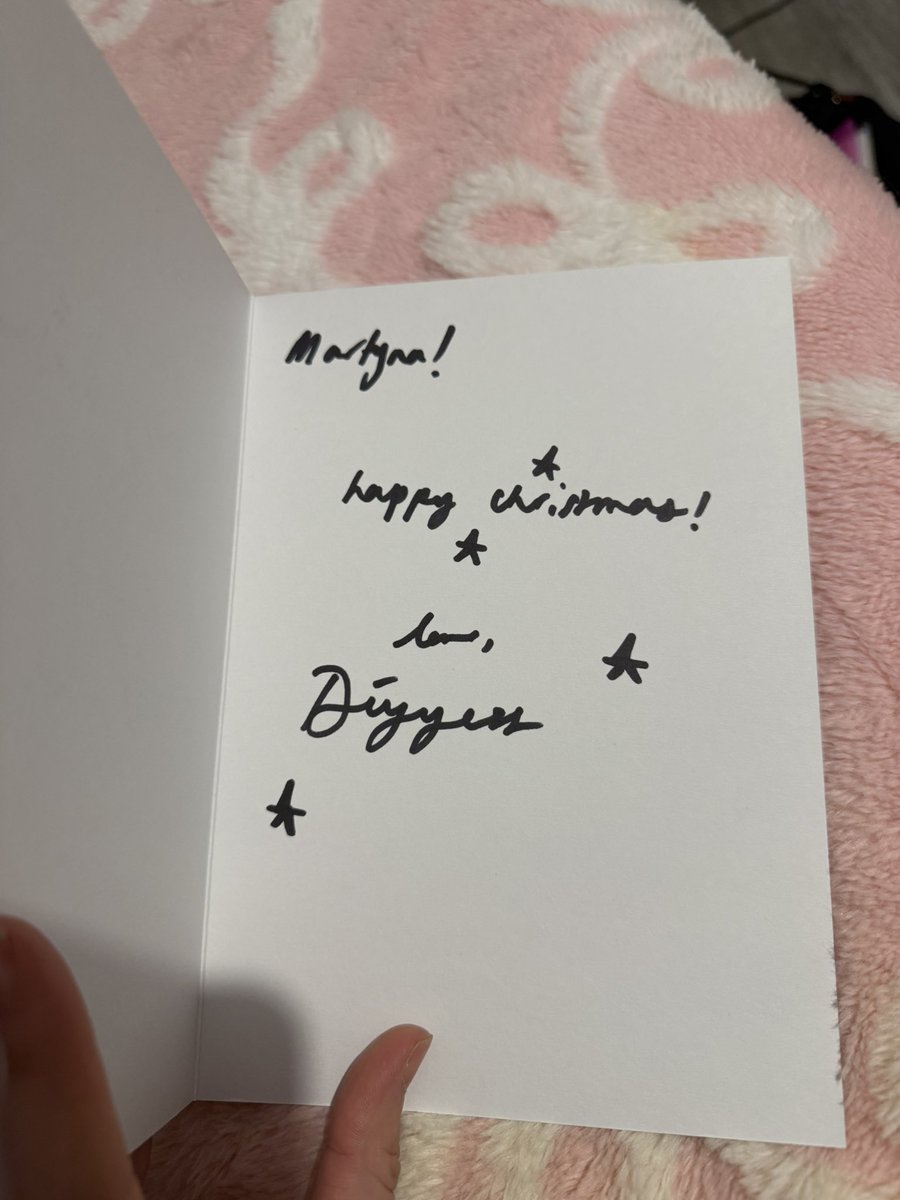 Martyna!
happy christmas!
love,